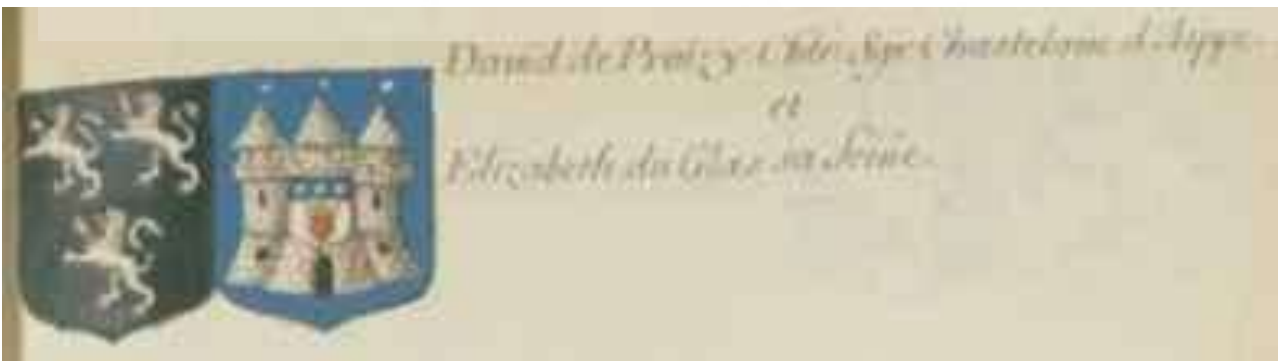 David de Proizy Chlr. Sgr. Chastelain d'Eppe
et
Elizabeth du Glas sa feme.